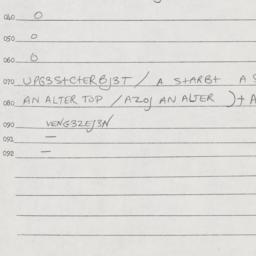 040 O
050 O
060 O
070 UPG3S+C+ERBJ3T / A S+ARB+ A S
080 AN ALTER TOP / AZOJ AN ALTER )+ A
090 VENG3ZEJ3N
091 —
092 —